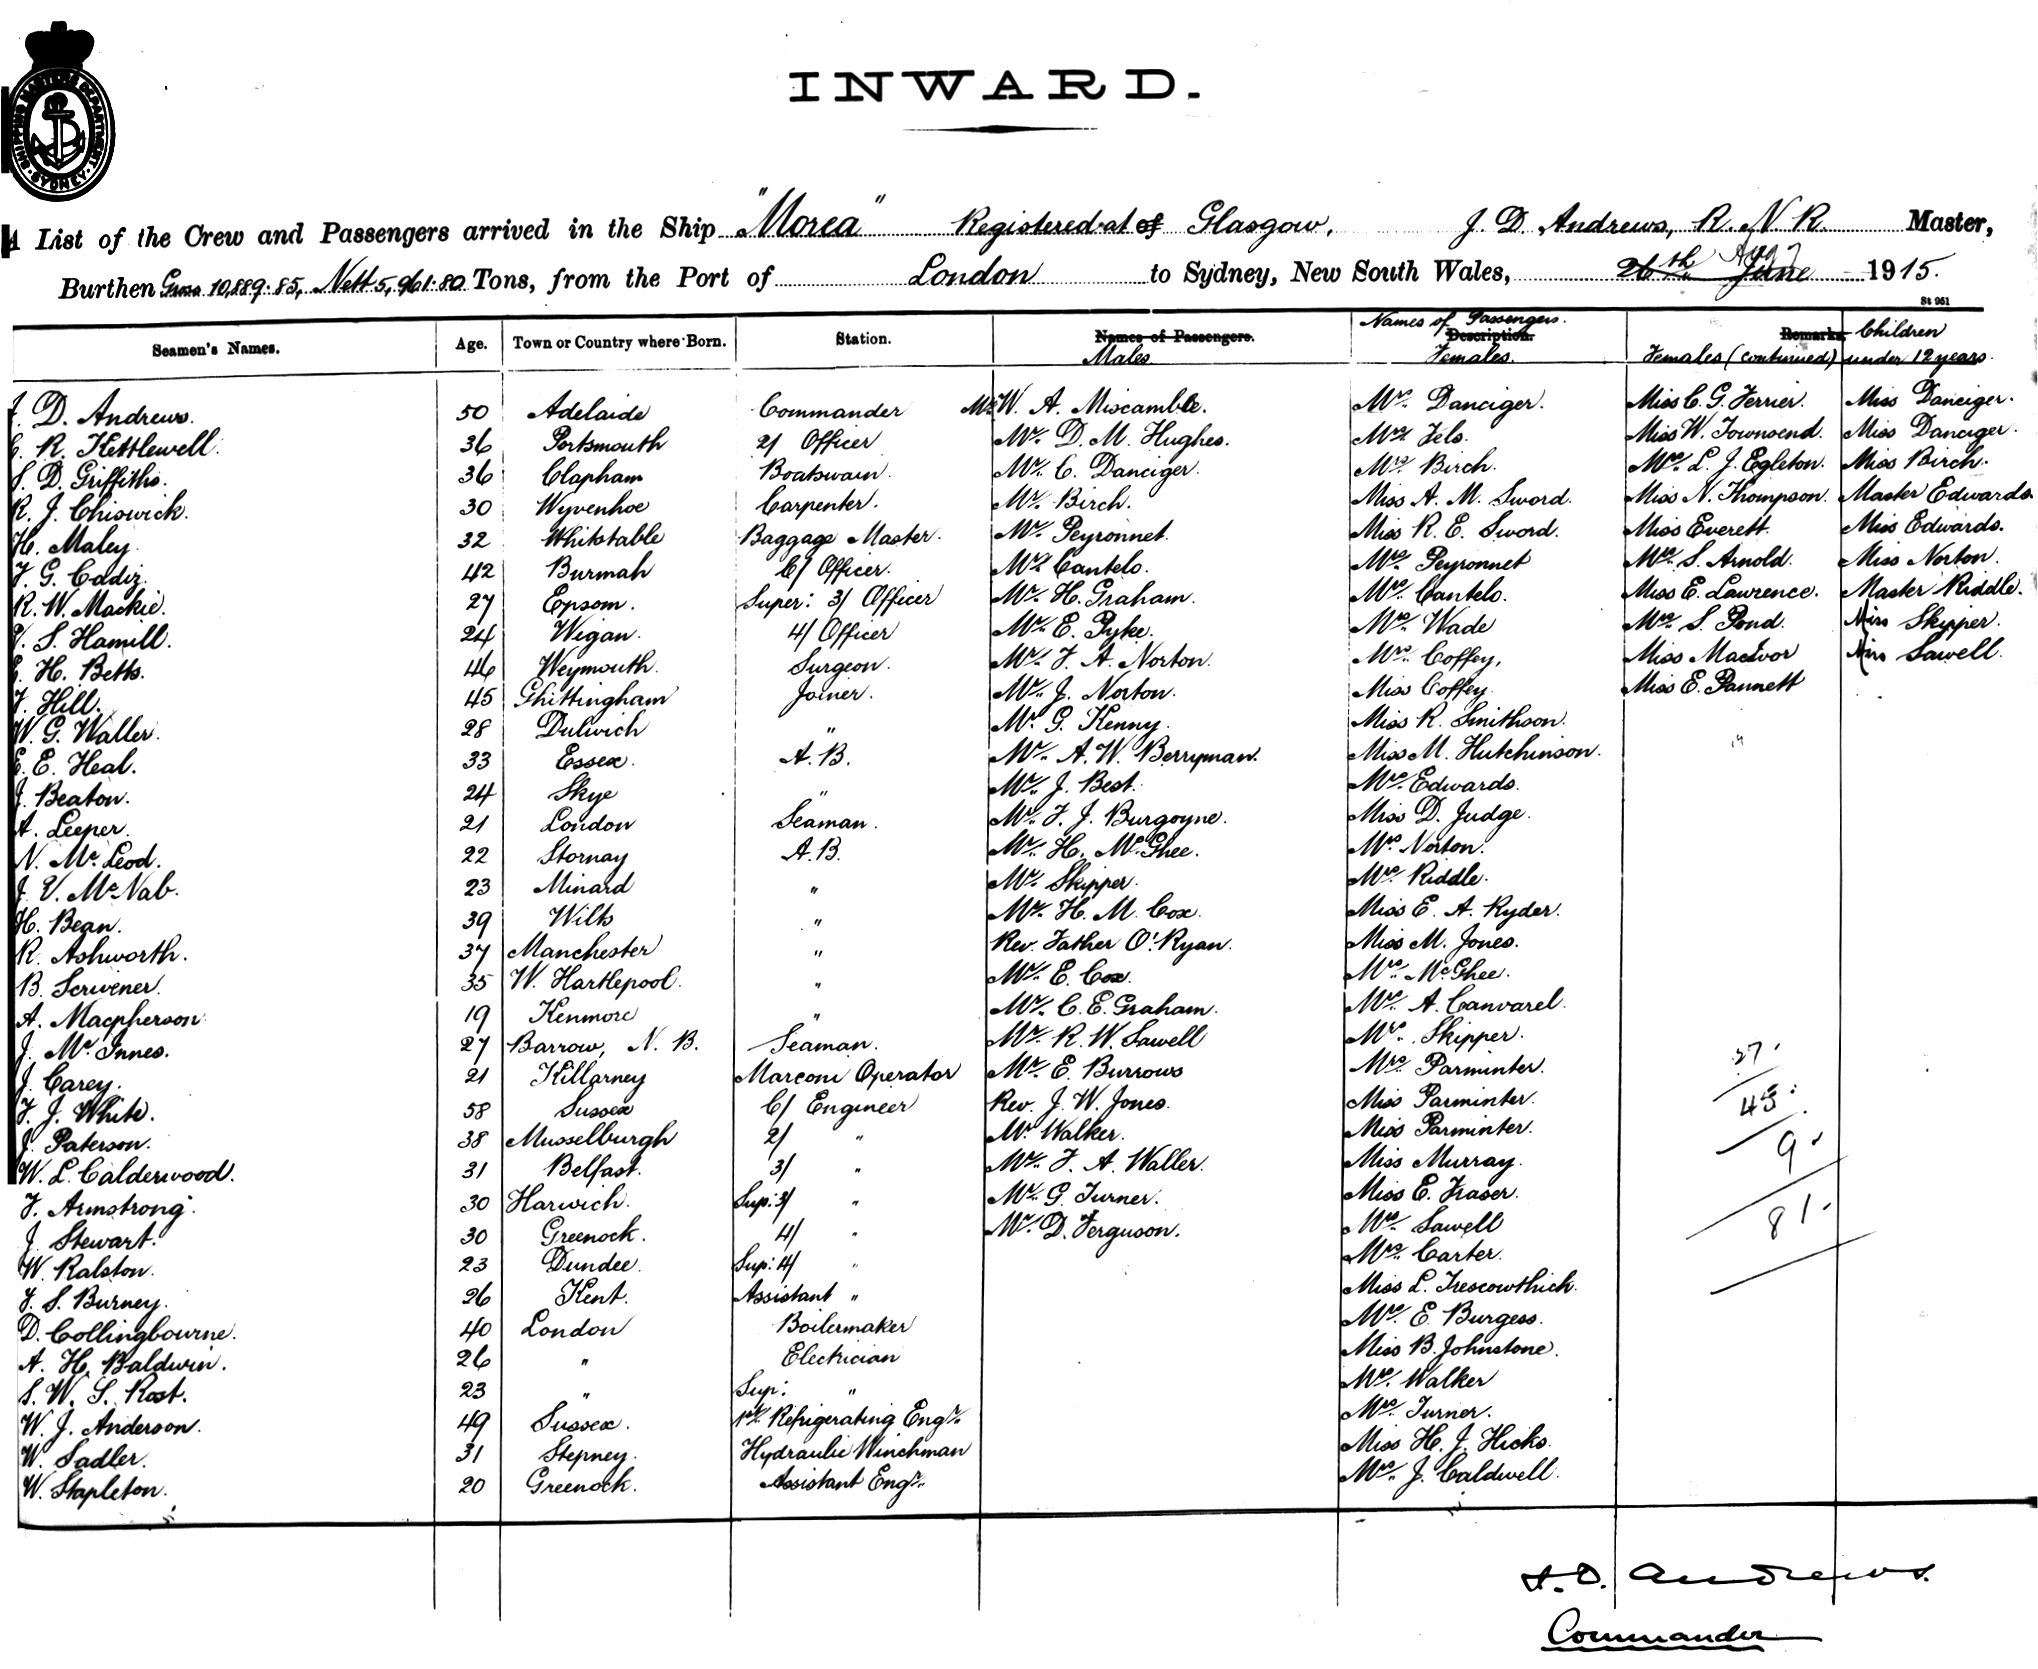 SHIPPING MASTER'S DEPARTMENT
SYDNEY
INWARD.
A List of the Crew and Passengers arrived in the Ship "Morea" Registered at of Glasgow, J. D. Andrews, R. N. R. Master,
Burthen Gross 10,889.85, Nett 5,961.80 Tons, from the Port of London to Sydney, New South Wales, 26th June 1915.
St 961
Seamen's Names. Age. Town or Country where Born. Station. Names of Passengers. Males Names of Passengers. Description. Females. Remarks. Females (continued) Children under 12 years.
J. D. Andrews. 50 Adelaide Commander Mr. W. A. Miscamble. Mrs. Danciger. Miss C. G. Ferrier. Miss Danciger.
C. R. Kettlewell. 36 Portsmouth 2/ Officer Mr. D. M. Hughes. Mrs. Fels. Miss W. Townsend. Miss Danciger.
S. D. Griffiths. 36 Clapham Boatswain. Mr. C. Danciger. Mrs. Birch. Mrs. L. J. Egleton. Miss Birch.
R. J. Chiswick. 30 Wyvenhoe Carpenter. Mr. Birch. Miss A. M. Sword. Miss N. Thompson. Master Edwards.
H. Maley. 32 Whitstable Baggage Master. Mr. Peyronnet. Miss R. E. Sword. Miss Everett. Miss Edwards.
F. G. Cadiz. 42 Burmah C/ Officer. Mr. Cantelo. Mrs. Peyronnet Mrs. S. Arnold. Miss Norton.
R. W. Mackie. 27 Epsom. Super: 3/ Officer Mr. H. Graham. Mrs. Cantelo. Miss E. Lawrence. Master Riddle.
V. S. Hamill. 24 Wigan. 4/ Officer Mr. E. Pyke. Mrs. Wade Mrs. S. Pond. Miss Skipper.
E. H. Betts. 46 Weymouth. Surgeon. Mr. F. A. Norton. Mrs. Coffey, Miss MacIvor Miss Sawell.
F. Hill. 45 Ghittingham Joiner. Mr. J. Norton. Miss Coffey. Miss E. Pannett
W. G. Waller. 28 Dulwich " Mr. G. Kenny. Miss R. Smithson.
E. E. Heal. 33 Essex. A. B. Mr. A. W. Berryman. Miss M. Hutchinson.
J. Beaton. 24 Skye " Mr. J. Best. Mrs. Edwards.
A. Leeper. 21 London Seaman. Mr. F. J. Burgoyne. Miss D. Judge.
N. Mc. Leod. 22 Stornay A. B. Mr. H. McGhee. Mrs. Norton.
J. V. McNab. 23 Minard " Mr. Skipper. Mrs. Riddle.
H. Bean. 39 Wilts " Mr. H. M. Cox. Miss E. A. Ryder.
R. Ashworth. 37 Manchester " Rev. Father O'Ryan. Miss M. Jones.
B. Scrivener. 35 W. Hartlepool. " Mr. E. Cox. Mrs. McGhee.
A. Macpherson 19 Kenmore " Mr. C. E. Graham. Mrs. A. Canvarel.
J. McInnes. 27 Barrow, N. B. Seaman. Mr. R. W. Sawell Mrs. Skipper.
J. Carey. 21 Killarney Marconi Operator Mr. E. Burrows Mrs. Parminter. 27.
F. J. White. 58 Sussex C/ Engineer Rev. J. W. Jones. Miss Parminter. 45.
J. Paterson. 38 Musselburgh 2/ " Mr Walker. Miss Parminter. 9.
W. L. Calderwood. 31 Belfast. 3/ " Mr. F. A. Waller. Miss Murray.
F. Armstrong. 30 Harwich. Sup: 3/ " Mr. G. Turner. Miss E. Fraser. 81.
J. Stewart. 30 Greenock. 4/ " Mr. D. Ferguson. Mrs. Sawell
W. Ralston. 23 Dundee. Sup: 4/ " Mrs. Carter.
F. S. Burney. 26 Kent. Assistant " Miss L. Trescowthick.
D. Collingbourne. 40 London Boilermaker Mrs. E. Burgess.
A. H. Baldwin. 26 " Electrician Miss B. Johnstone.
S. W. S. Rost. 23 " Sup: " Mrs. Walker
W. J. Anderson. 49 Sussex. 1st. Refrigerating Engr. Mrs. Turner.
W. Sadler. 31 Stepney. Hydraulic Winchman Miss H. J. Hicks.
W. Stapleton. 20 Greenock. Assistant Engr. Mrs. J. Caldwell.
J. D. Andrews.
Commander